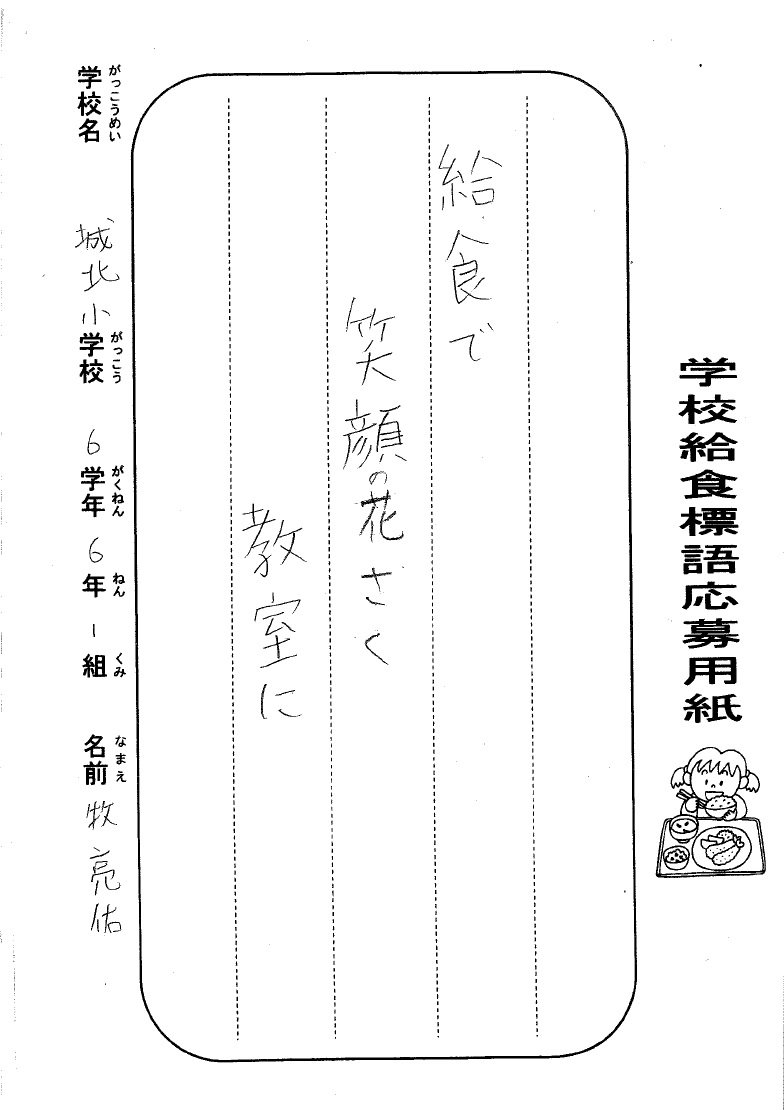 学校給食標語応募用紙
給食で
笑顔の花さく
教室に
学校名 城北小学校 6学年 6年 1組 名前 牧亮佑
がっこうめい がっこう がくねん ねん くみ なまえ